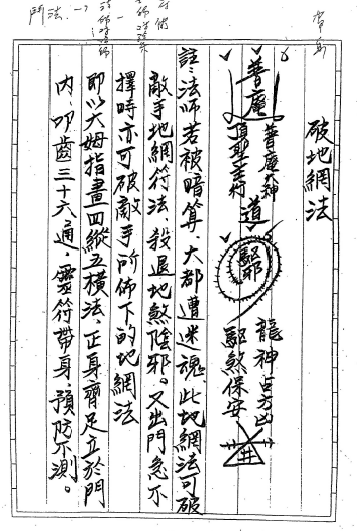 破地網法
龍神占方凶
驅煞保安
井
普庵
普庵大神
道
驅邪
註:法師若被暗算,大都遭迷魂,此地網法可破
敵手地網符法,殺退地煞陰邪。又出門急不
擇時亦可破敵手所佈下的地網法
即以大姆指畫四縱五橫法,正身齊足立於門
內,叩齒三十六通,靈符帶身,預防不測。
鬥法